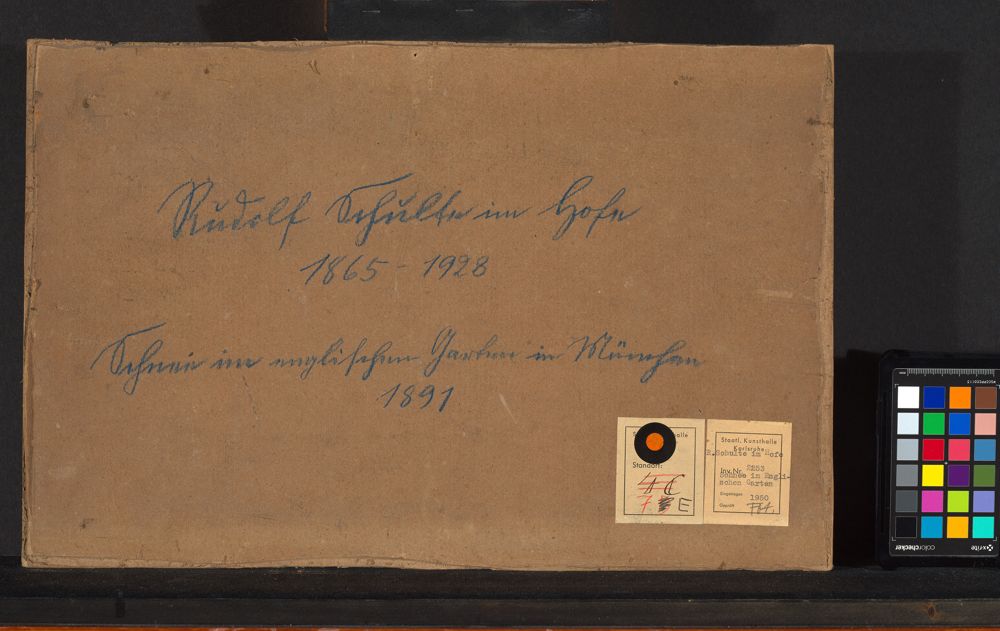 Rudolf Schulte im Hofe
1865 - 1928
Schnee im englischen Garten in München
1891
Standort:
E
Staatl. Kunsthalle
Karlsruhe
R.Schulte im Hofe
Inv.Nr. 2253
Schnee im Engli-
schen Garten
Eingetragen 1950
Geprüft
colorchecker x-rite